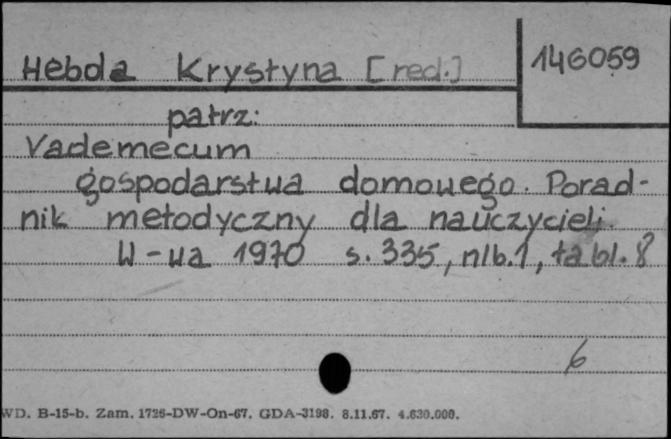 Hebda Krystyna [red.]
146059
patrz:
Vademecum
gospodarstwa domowego. Porad-
nik metodyczny dla nauczycieli.
W-wa 1970 s. 335, nlb. 1, tabl. 8
6
WD. B-15-b. Zam. 1726-DW-On-67. GDA-3198. 8.11.67. 4.630.000.